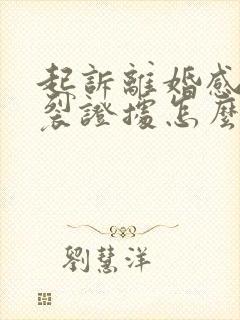 起訴離婚感
裂證據怎麼
劉慧洋